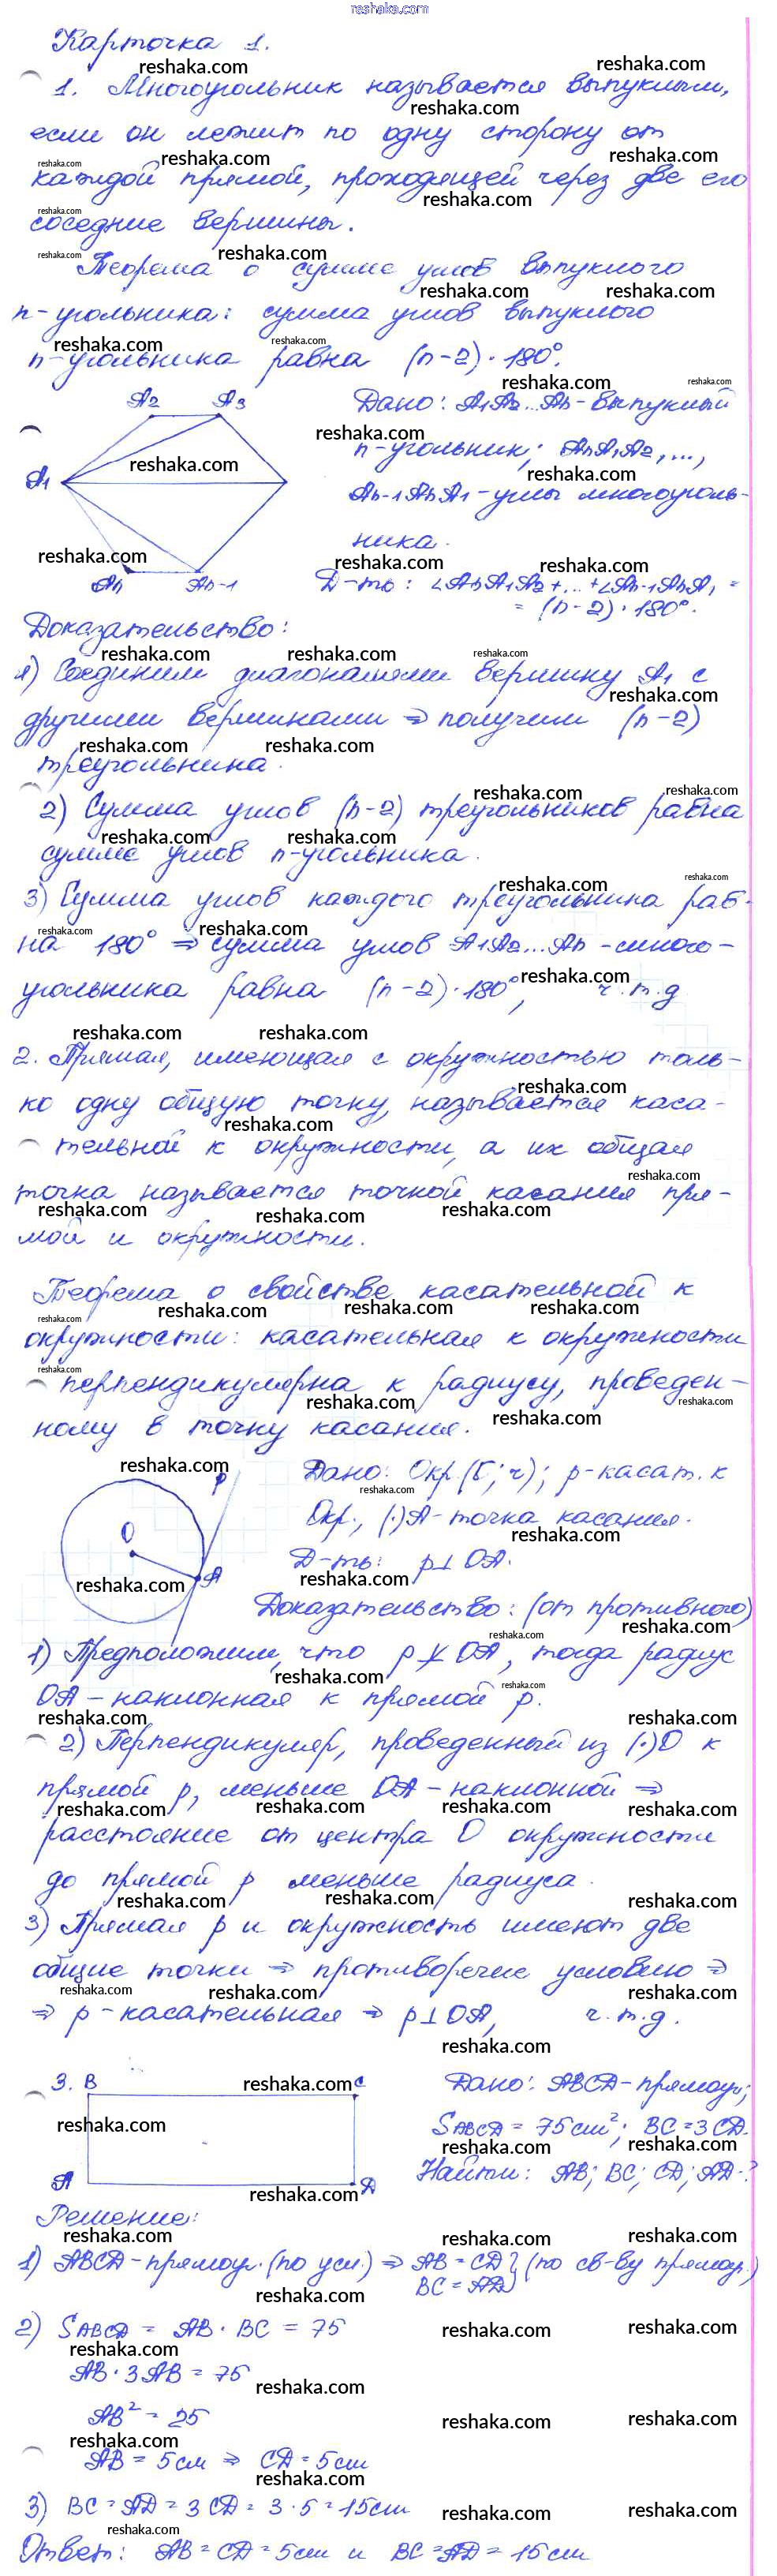 reshaka.com
Карточка 1.
1. Многоугольник называется выпуклым,
если он лежит по одну сторону от
каждой прямой, проходящей через две его
соседние вершины.
Теорема о сумме углов выпуклого
n-угольника: сумма углов выпуклого
n-угольника равна (n-2)·180°.
A2 A3
Дано: A1A2...An - выпуклый
n-угольник; AnA1A2, ...,
A1
An-1AnA1 - углы многоуголь-
ника.
An An-1
Д-ть: ∠AnA1A2+...+∠An-1AnA1 =
= (n-2)·180°.
Доказательство:
1) Соединим диагоналями вершину A1 с
другими вершинами ⇒ получим (n-2)
треугольника.
2) Сумма углов (n-2) треугольников равна
сумме углов n-угольника.
3) Сумма углов каждого треугольника рав-
на 180° ⇒ сумма углов A1A2...An - много-
угольника равна (n-2)·180°, ч.т.д.
2. Прямая, имеющая с окружностью толь-
ко одну общую точку, называется каса-
тельной к окружности, а их общая
точка называется точкой касания пря-
мой и окружности.
Теорема о свойстве касательной к
окружности: касательная к окружности
перпендикулярна к радиусу, проведен-
ному в точку касания.
p
Дано: Окр(O; r); p-касат. к
Окр., (·)A-точка касания.
O
A
Д-ть: p⊥OA.
Доказательство: (от противного)
1) Предположим, что p⊥̸OA, тогда радиус
OA - наклонная к прямой p.
2) Перпендикуляр, проведенный из (·)O к
прямой p, меньше OA - наклонной ⇒
расстояние от центра O окружности
до прямой p меньше радиуса.
3) Прямая p и окружность имеют две
общие точки ⇒ противоречие условию ⇒
⇒ p - касательная ⇒ p⊥OA, ч.т.д.
3. B C
Дано: ABCD - прямоуг;
SABCD = 75см²; BC=3CD.
A D
Найти: AB; BC; CD; AD-?
Решение:
1) ABCD - прямоуг. (по усл.) ⇒ AB = CD } (по св-ву прямоуг.)
BC = AD
2) SABCD = AB · BC = 75
AB · 3AB = 75
AB² = 25
AB = 5см ⇒ CD = 5см
3) BC = AD = 3CD = 3·5 = 15см
Ответ: AB = CD = 5см и BC = AD = 15см